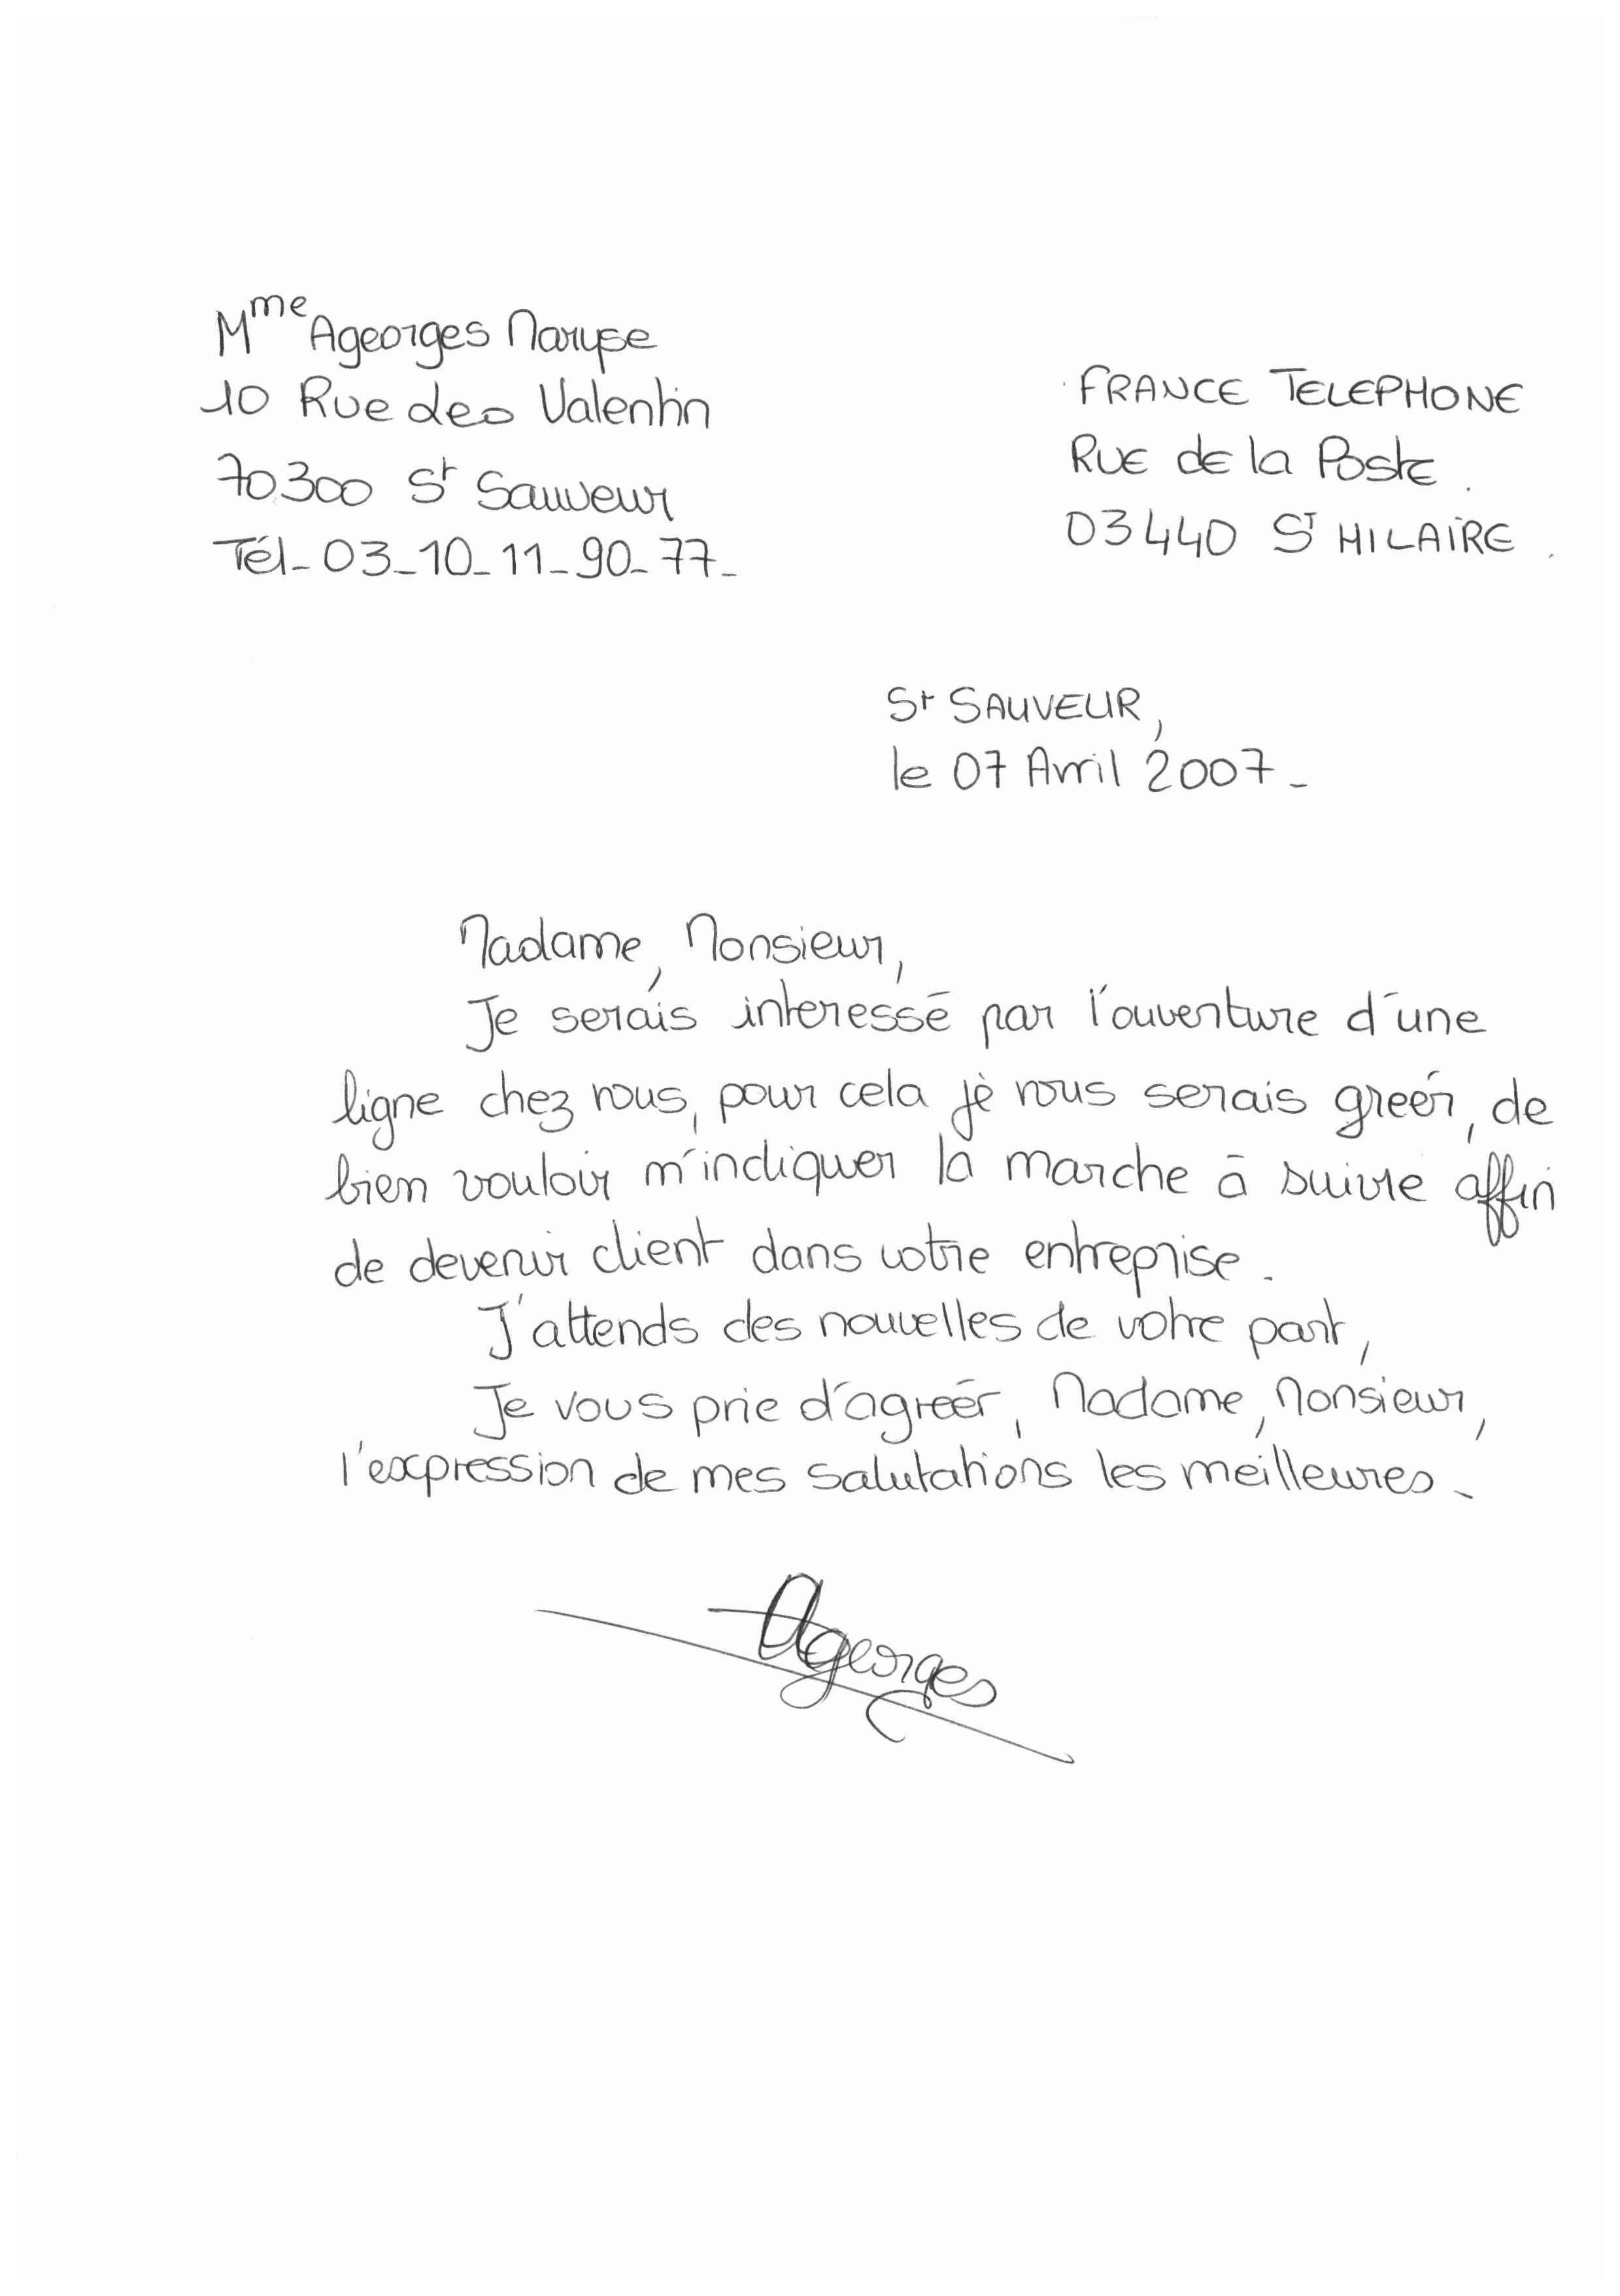 Mme Ageorges Maryse
10 Rue des Valentin
70300 St Sauveur
Tél_03_10_11_90_77_
FRANCE TELEPHONE
Rue de la Poste.
03440 ST HILAIRE.
St SAUVEUR,
le 07 Avril 2007_
Madame, Monsieur,
Je serais interessé par l'ouverture d'une
ligne chez vous, pour cela je vous serais greér, de
bien vouloir m'indiquer la marche à suivre affin
de devenir client dans votre entreprise.
J'attends des nouvelles de votre part,
Je vous prie d'agréer, Madame, Monsieur,
l'expression de mes salutations les meilleures_
Ageorges